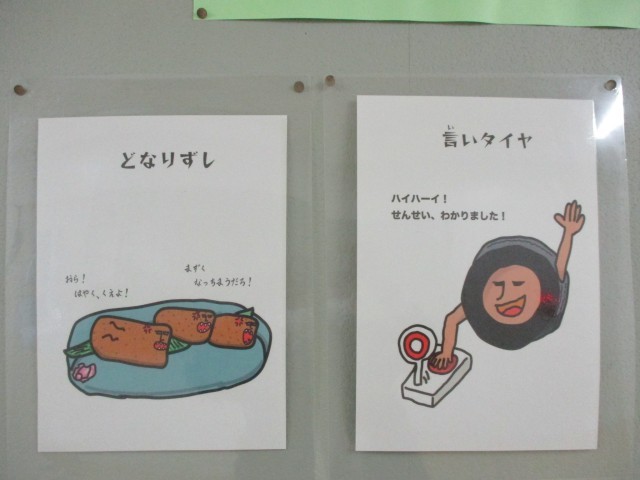 どなりずし
おら！
はやく、くえよ！
まずく
なっちまうだろ！
言いタイヤ
い
ハイハーイ！
せんせい、わかりました！